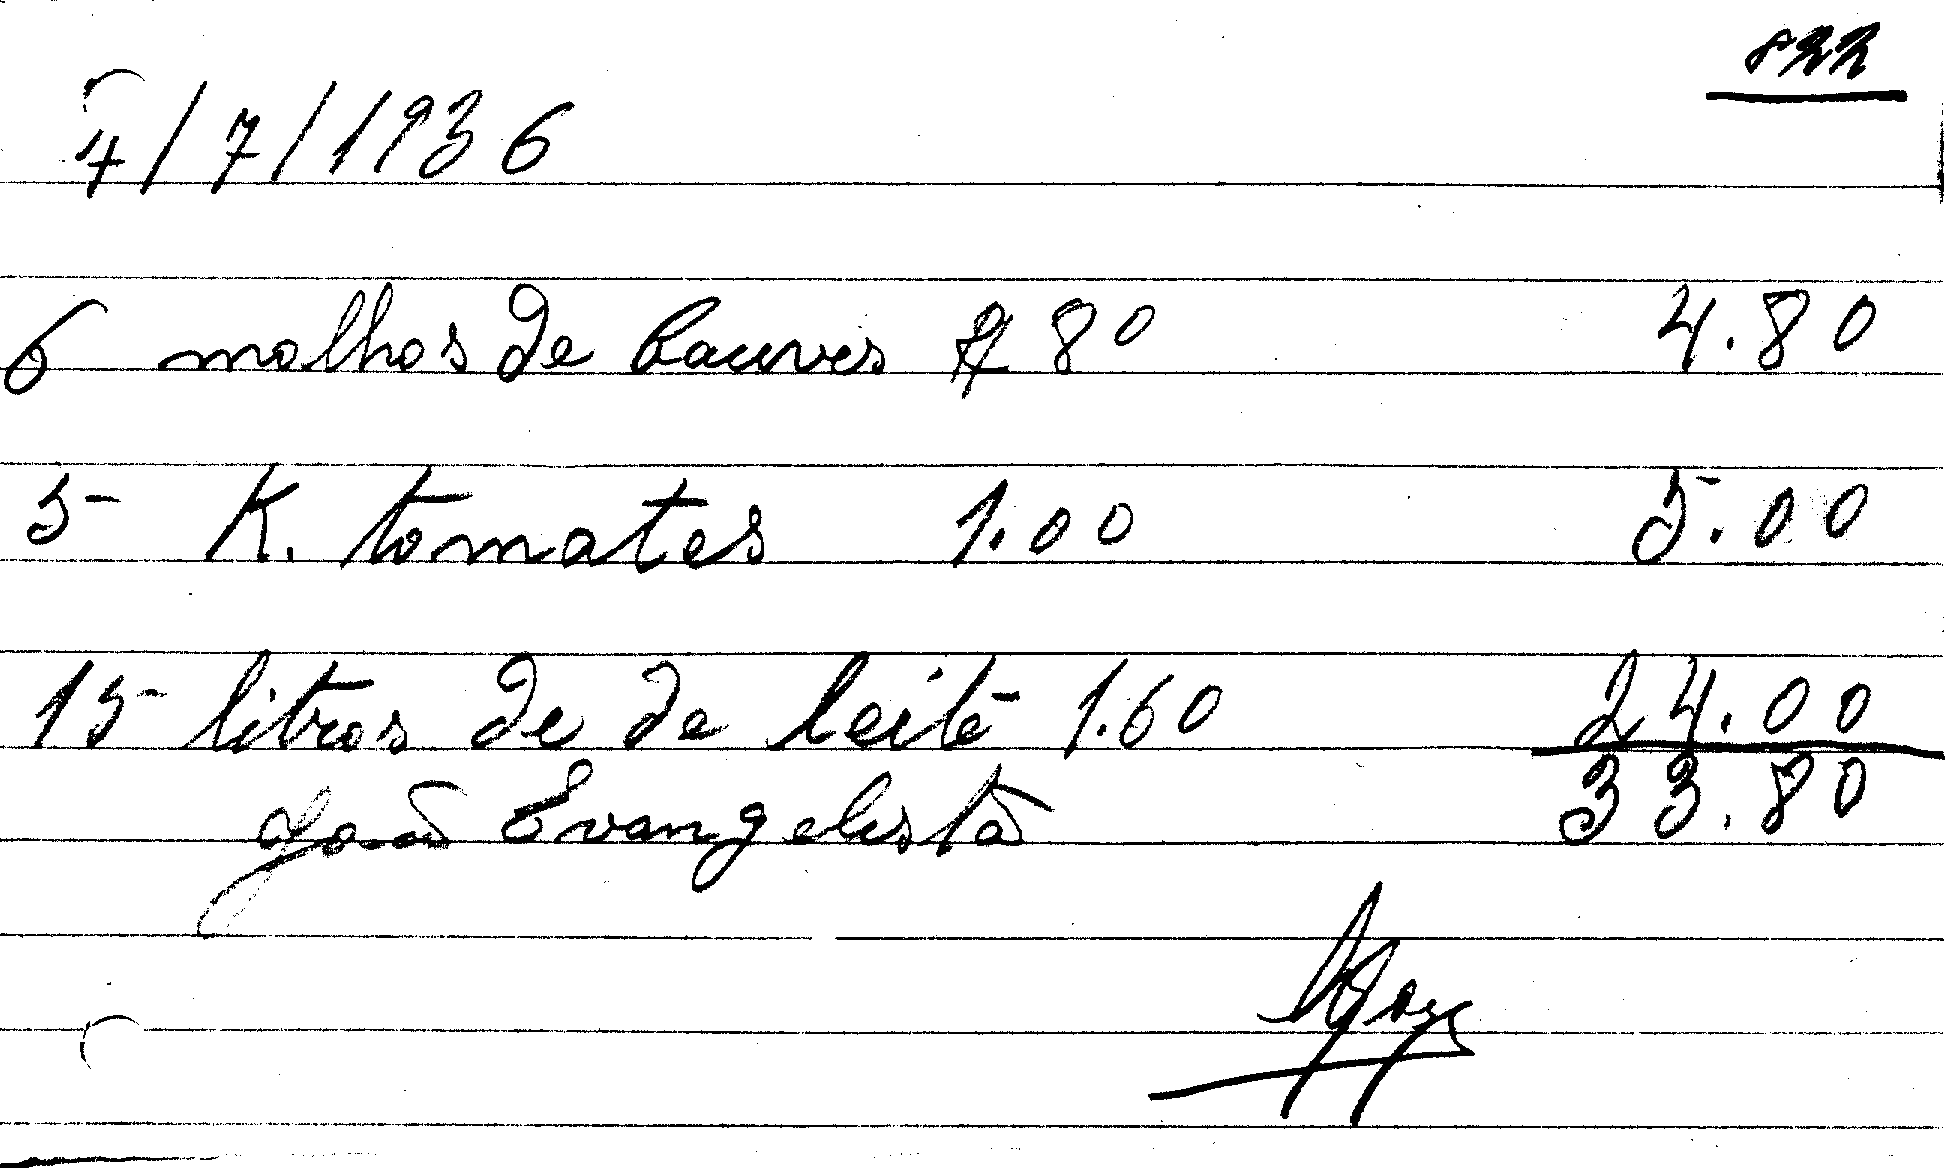 822
4/7/1936
6 molhos de Couves 80 4.80
5 K. tomates 1.00 5.00
15 litros de de leite 1.60 24.00
33.80
João Evangelista